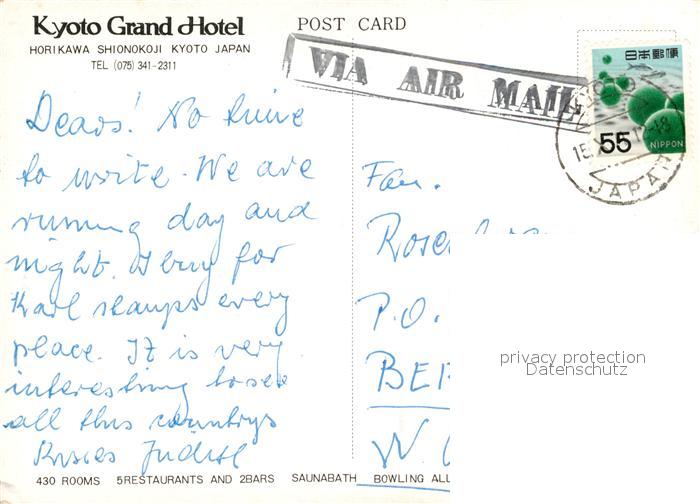 Kyoto Grand Hotel
HORIKAWA SHIONOKOJI KYOTO JAPAN
TEL (075) 341-2311
POST CARD
VIA AIR MAIL
日本郵便
55
NIPPON
JAPAN
Dears! No time
to write. We are
running day and
night. I buy for
Karl stamps every
place. It is very
interesting to see
all this countrys
Kisses Judith
Fam.
P.O.
BER
W.
privacy protection
Datenschutz
430 ROOMS 5RESTAURANTS AND 2BARS SAUNABATH BOWLING ALL